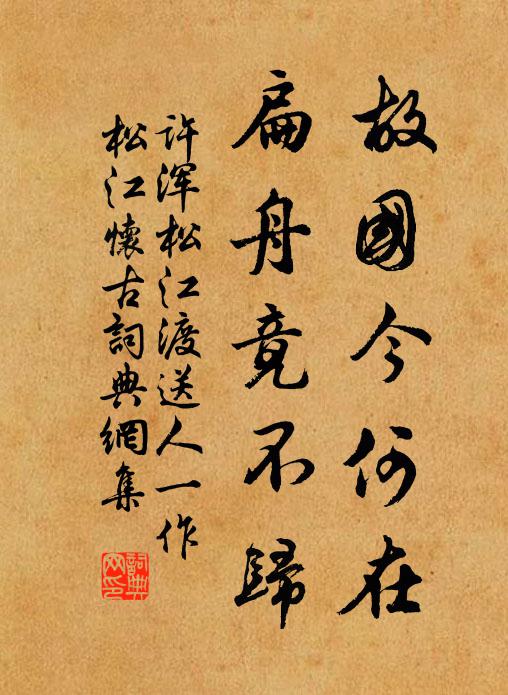 故國今何在
扁舟竟不歸
许渾松江渡送人一作
松江懷古詞典網集
詞典
网印